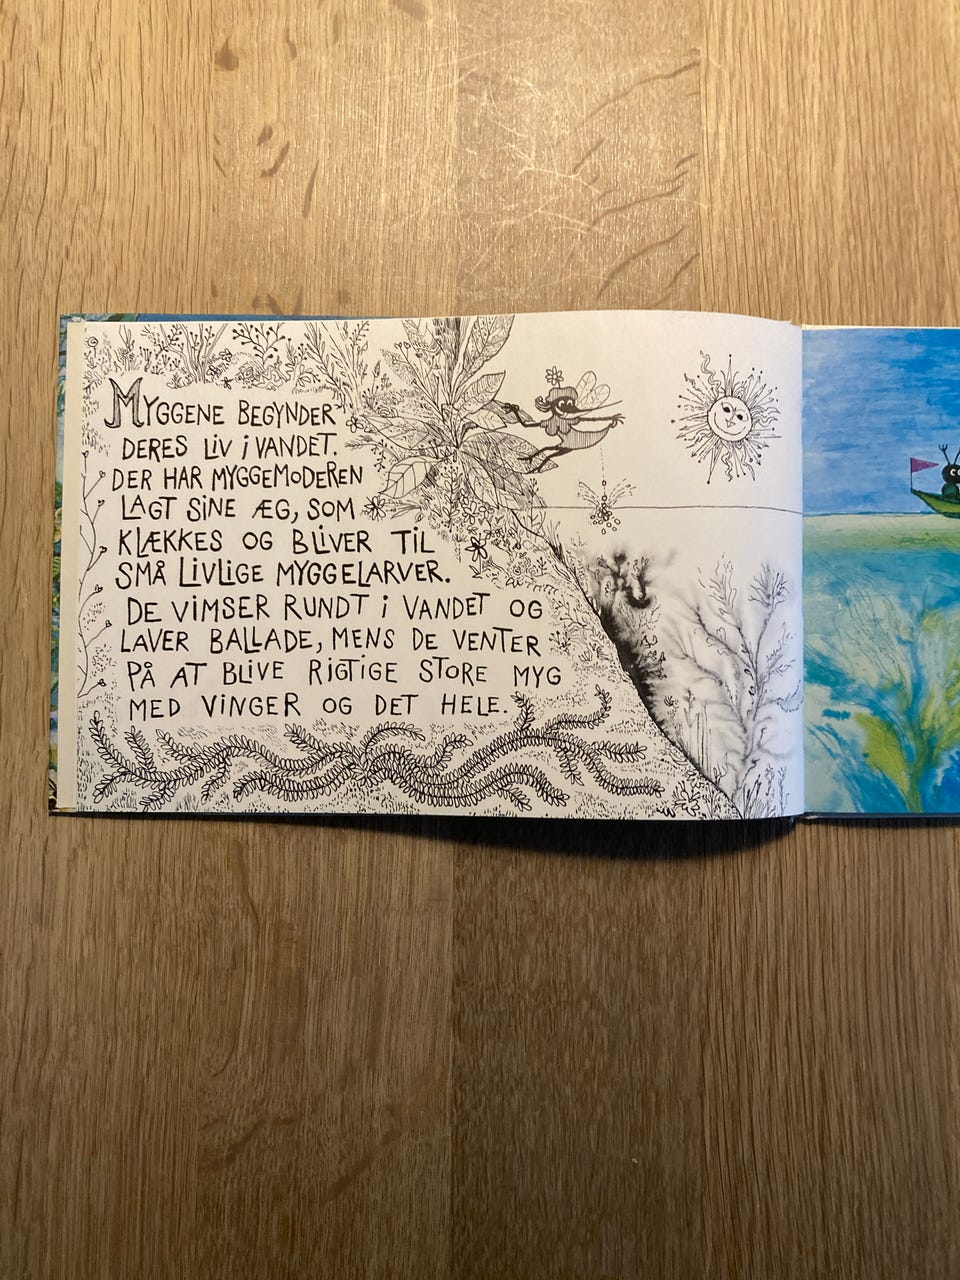 MYGGENE BEGYNDER
DERES LIV i VANDET.
DER HAR MYGGEMODEREN
LAGT SINE ÆG, SOM
KLÆKKES OG BLIVER TIL
SMÅ LIVLIGE MYGGELARVER.
DE VIMSER RUNDT i VANDET OG
LAVER BALLADE, MENS DE VENTER
PÅ AT BLIVE RIGTIGE STORE MYG
MED VINGER OG DET HELE.